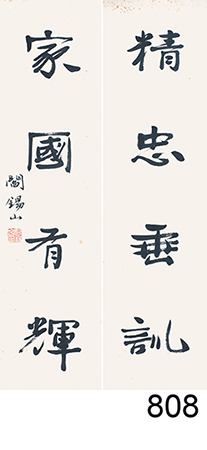 精忠垂訓
家國有輝
閻錫山
808